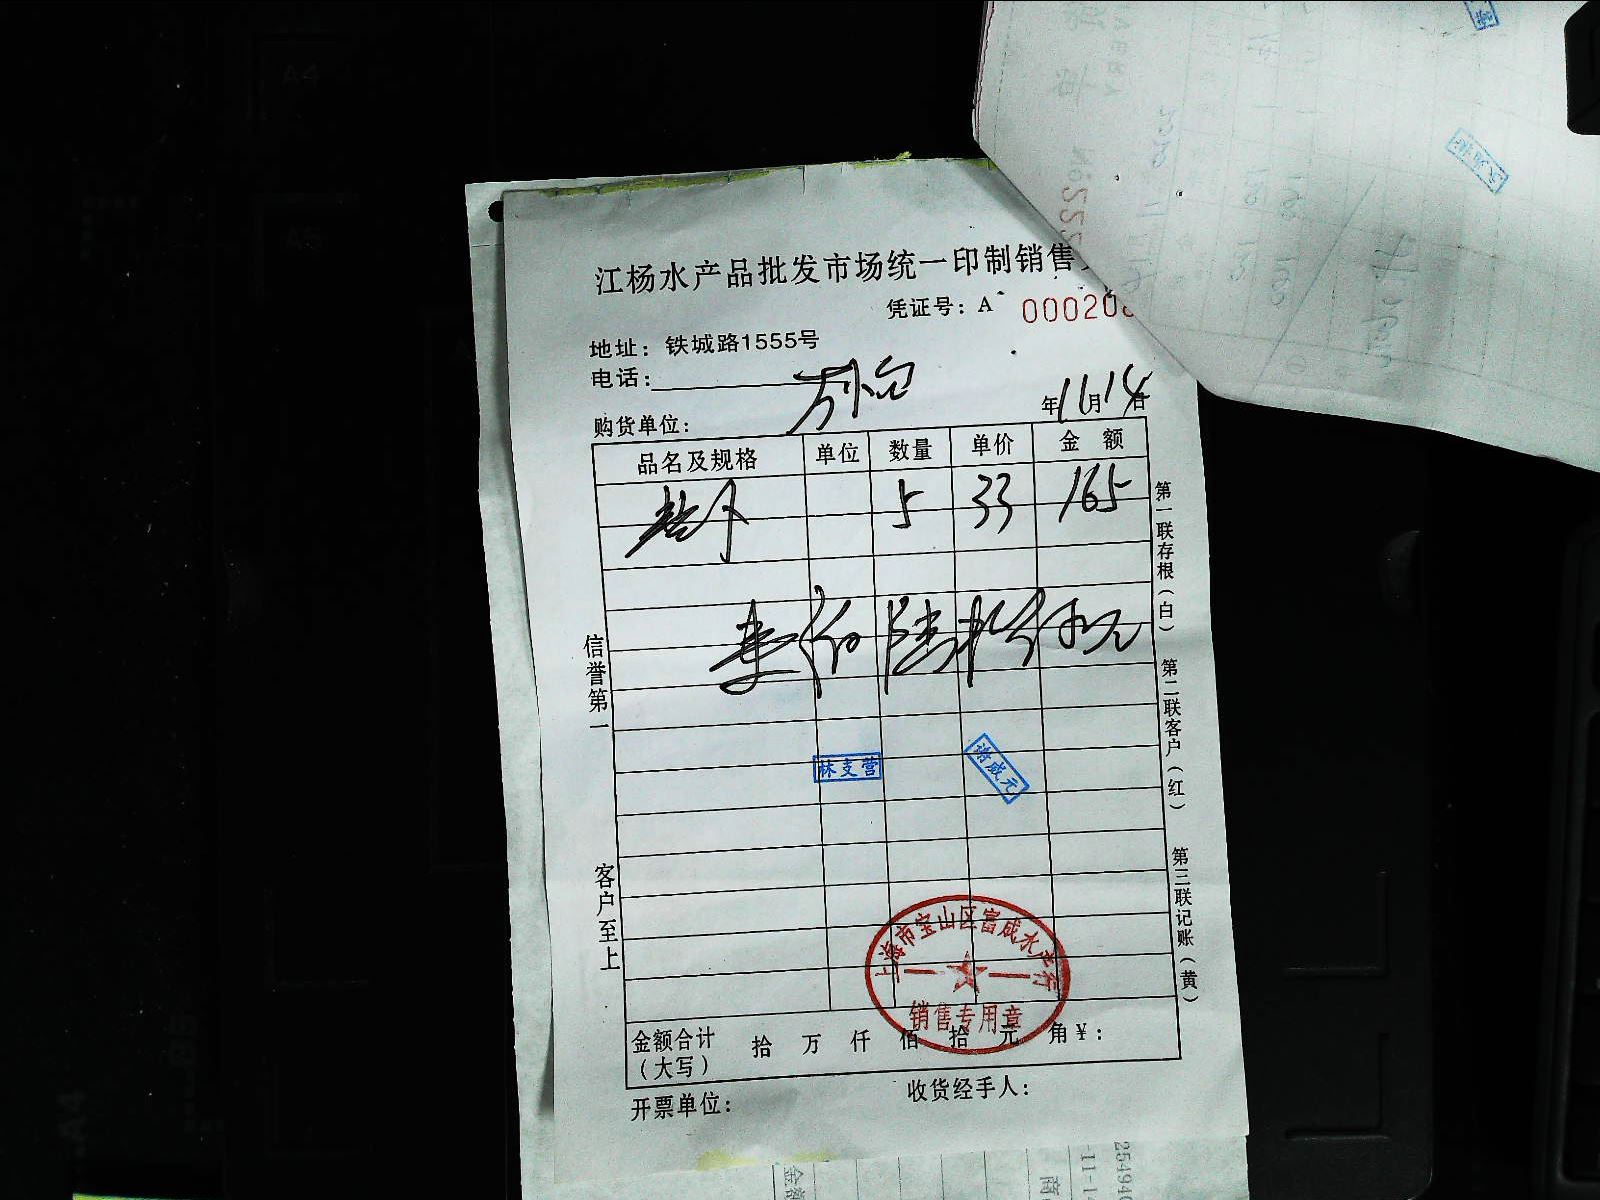 江杨水产品批发市场统一印制销售
凭证号：A 000208
地址：铁城路1555号
电话：
购货单位：
年11月14日
品名及规格 单位 数量 单价 金额
5 33 165
壹佰陆拾伍元
林支营
谢成元
上海市宝山区富成水产行
销售专用章
金额合计（大写） 拾 万 仟 佰 拾 元 角 ¥：
开票单位： 收货经手人：
信誉第一
客户至上
第一联存根（白）
第二联客户（红）
第三联记账（黄）
A4